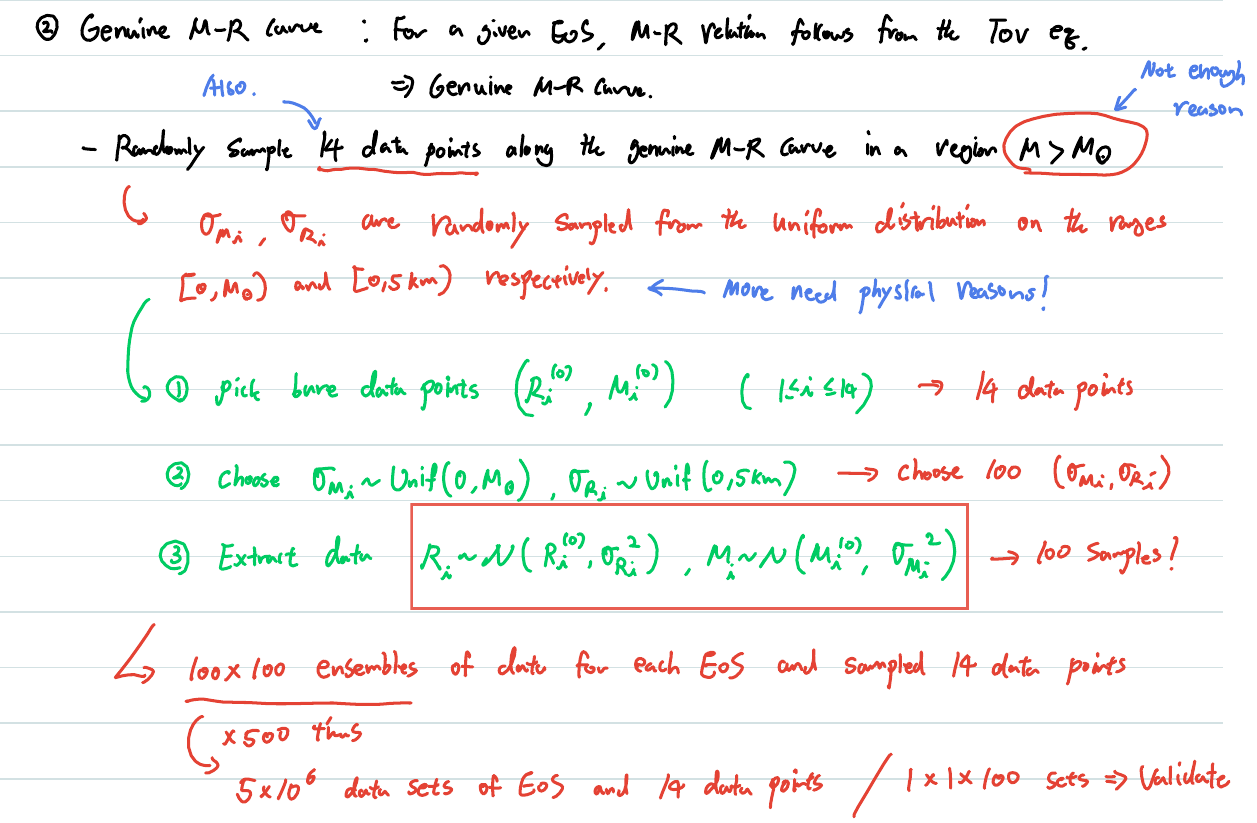 ② Genuine M-R Curve : For a given EoS, M-R relation follows from the TOV eq.
Also. ⇒ Genuine M-R Curve.
Not enough
reason
- Randomly Sample 14 data points along the genuine M-R Curve in a region M > M⊙
σ_Mi, σ_Ri are randomly sampled from the uniform distribution on the ranges
[0, M⊙) and [0, 5km) respectively. ← More need physical reasons!
① pick bare data points (R_i^(0), M_i^(0)) (1≤i≤14) → 14 data points
② Choose σ_Mi ~ Unif(0, M⊙), σ_Ri ~ Unif(0, 5km) → choose 100 (σ_Mi, σ_Ri)
③ Extract data R_i ~ N(R_i^(0), σ_Ri^2), M_i ~ N(M_i^(0), σ_Mi^2) → 100 samples!
100 x 100 ensembles of data for each EoS and sampled 14 data points
x 500 thus
5 x 10^6 data sets of EoS and 14 data points / 1 x 1 x 100 sets ⇒ Validate